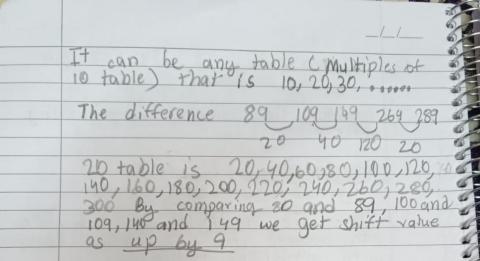 It can be any table (Multiples of
10 table) that is 10, 20, 30, .......
The difference 89 109 149 269 289
20 40 120 20
20 table is 20, 40, 60, 80, 100, 120,
140, 160, 180, 200, 220, 240, 260, 280,
300 By comparing 80 and 89, 100 and
109, 140 and 149 we get shift value
as up by 9